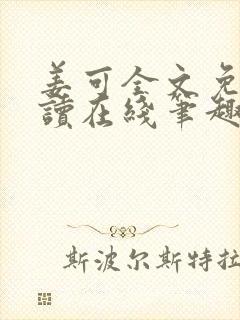 姜可全文免
讀在綫笔趣
斯波尔斯特拉